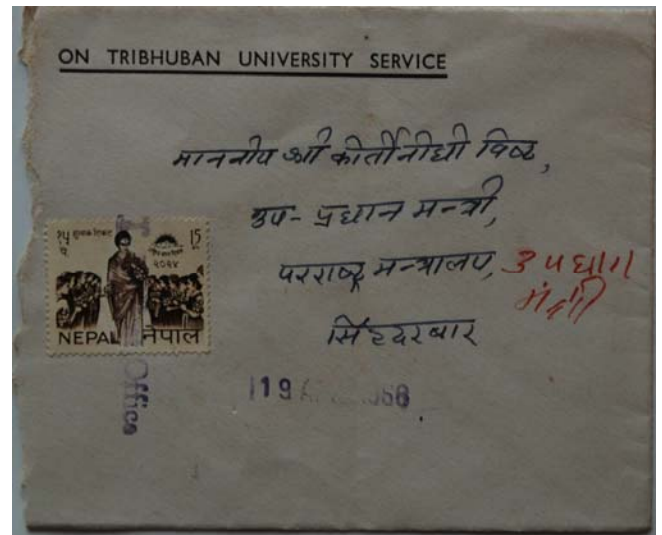 ON TRIBHUBAN UNIVERSITY SERVICE
माननीय श्री कीर्तीनीधी विष्ट,
उप- प्रधान मन्त्री,
परराष्ट्र मन्त्रालय,
सिंहदरबार
उपप्रधान
मंत्री
१५ प
हुलाक टिकट
15
२०२४
NEPAL नेपाल
Office
19 1968